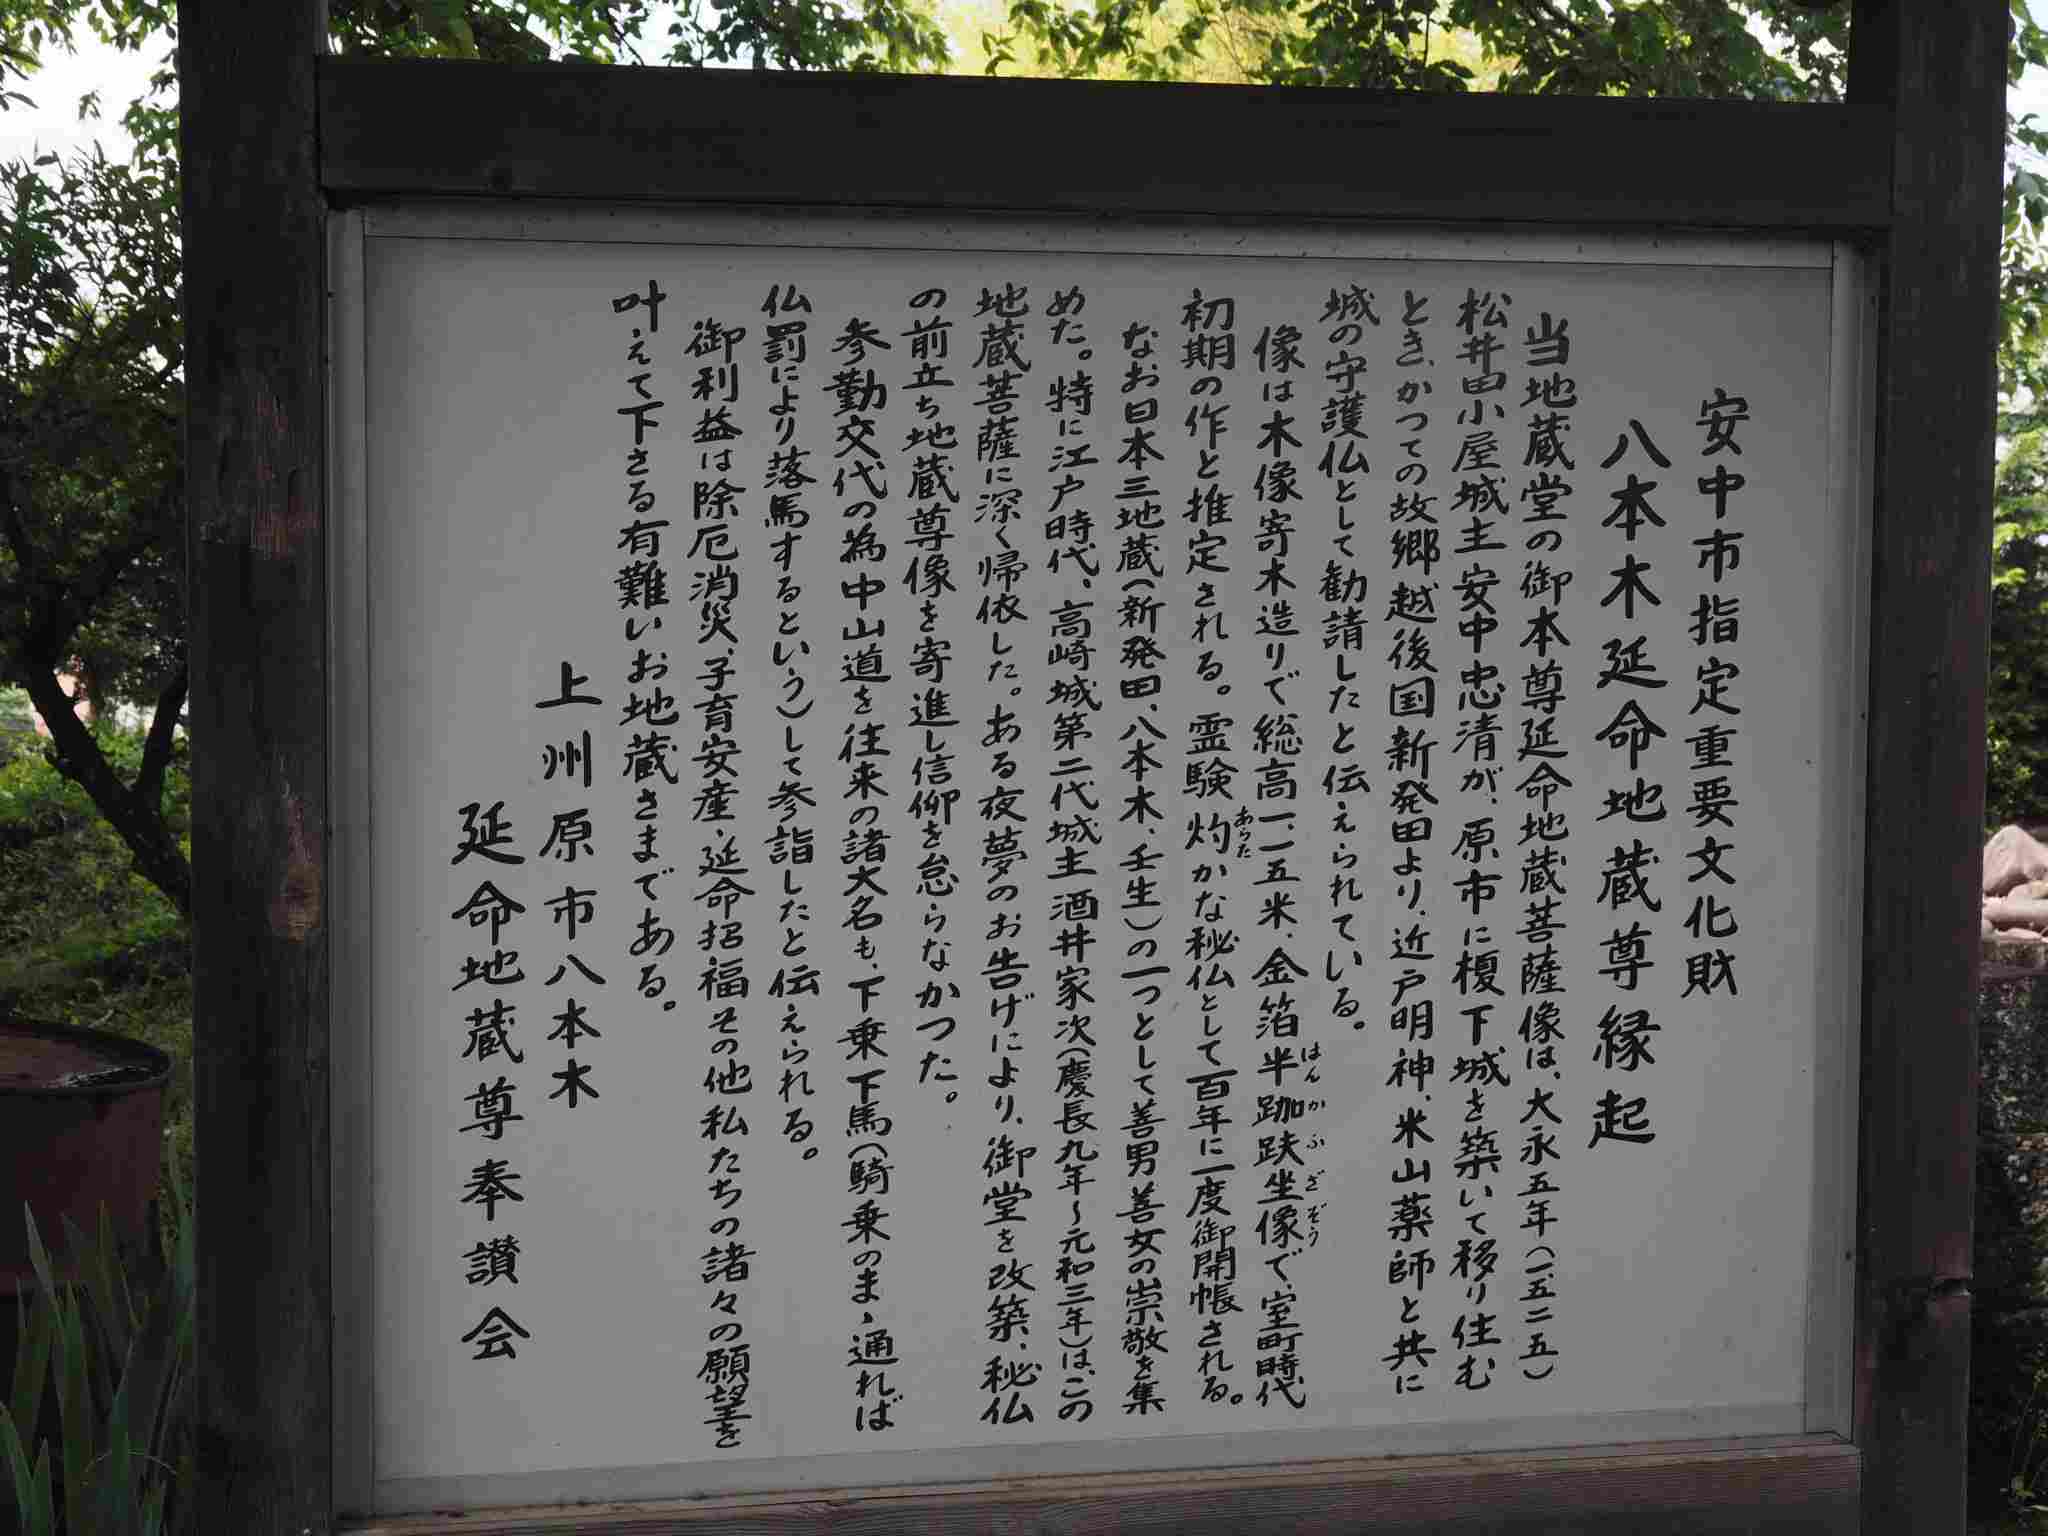 安中市指定重要文化財
八本木延命地蔵尊縁起
当地蔵堂の御本尊延命地蔵菩薩像は、大永五年(一五二五)
松井田小屋城主安中忠清が、原市に榎下城を築いて移り住む
とき、かつての故郷越後国新発田より、近戸明神、米山薬師と共に
城の守護仏として勧請したと伝えられている。
像は木像寄木造りで総高一、一五米、金箔半跏趺坐像で、室町時代
はんかふざぞう
初期の作と推定される。霊験灼かな秘仏として百年に一度御開帳される。
あらた
なお日本三地蔵(新発田、八本木、壬生)の一つとして善男善女の崇敬を集
めた。特に江戸時代、高崎城第二代城主酒井家次(慶長九年～元和三年)は、この
地蔵菩薩に深く帰依した。ある夜夢のお告げにより、御堂を改築、秘仏
の前立ち地蔵尊像を寄進し信仰を怠らなかつた。
参勤交代の為中山道を往来の諸大名も、下乗下馬(騎乗のまゝ通れば
仏罰により落馬するという)して参詣したと伝えられる。
御利益は除厄消災、子育安産、延命招福その他私たちの諸々の願望を
叶えて下さる有難いお地蔵さまである。
上州原市八本木
延命地蔵尊奉讃会